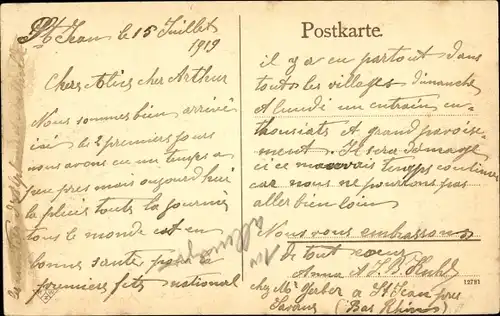 St Jean le 15 Juillet
1919
Postkarte.
Chers Alice cher Arthur
Nous sommes bien arrivé
ici les 2 premiers jours
nous avons eu un temps a
peu pres mais aujourd'hui
la pluie toute la journée
tous le monde est en
bonne santé pour la
premiers fête national
il y a eu partout dans
touts les villages dimanche
& lundi un entrain en-
thousiaste & grand pavoise-
ment. Il sera domage
si ce mauvais temps continue
car nous ne pourrons pas
aller bien loin
Nous vous embrassons
de tout coeur
Anna &
chez Mr Gerber a St Jean pres
Saverne (Bas Rhin)
12791